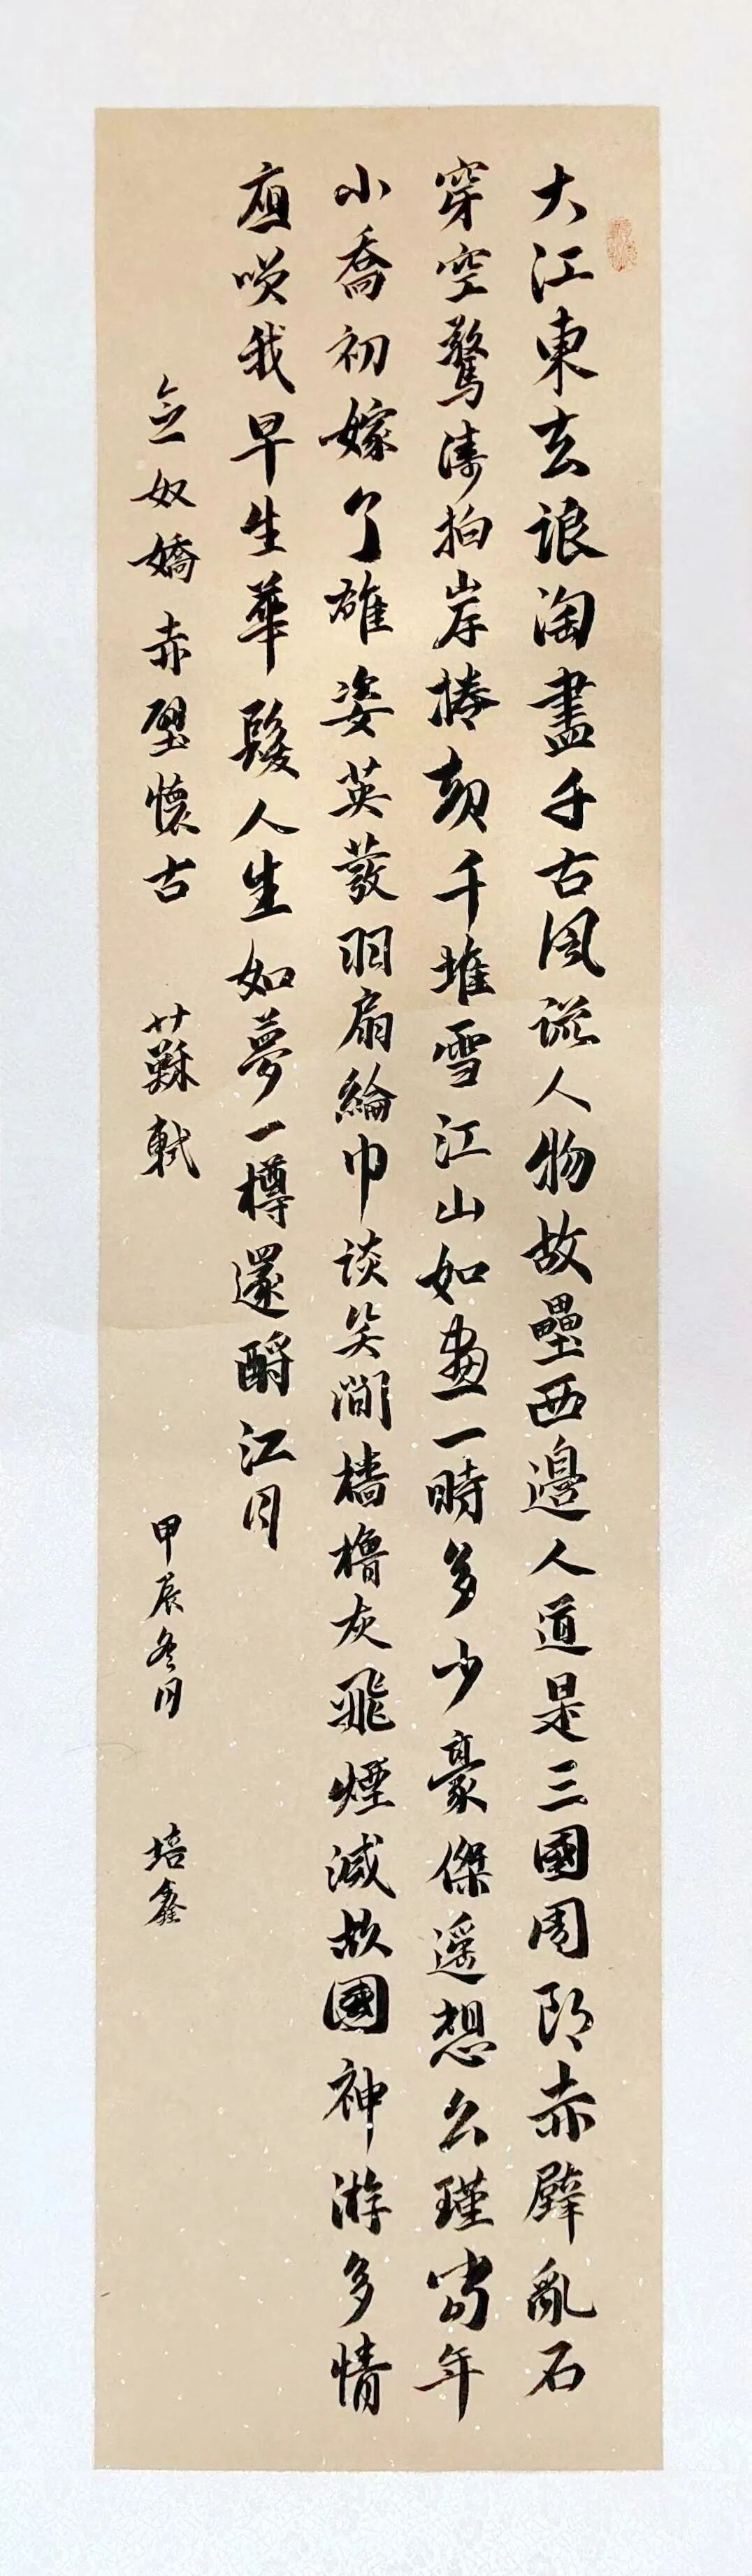 大江東去浪淘盡千古風流人物故壘西邊人道是三國周郎赤壁亂石
穿空驚濤拍岸捲起千堆雪江山如畫一時多少豪傑遥想公瑾當年
小喬初嫁了雄姿英發羽扇綸巾談笑間檣櫓灰飛煙滅故國神游多情
應笑我早生華髮人生如夢一樽還酹江月
念奴嬌赤壁懷古 蘇軾
甲辰冬月 培鑫